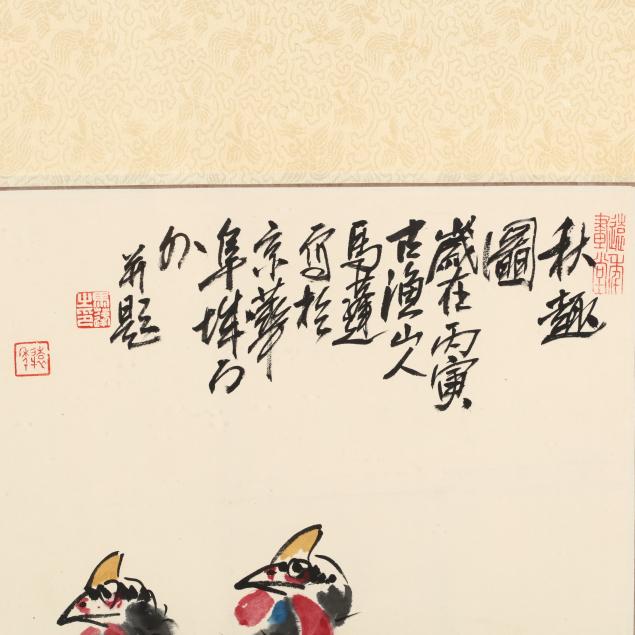 秋趣
圖
歲在丙寅
古漁山人
馬蓮
寫於
京華
阜城门
外
并題